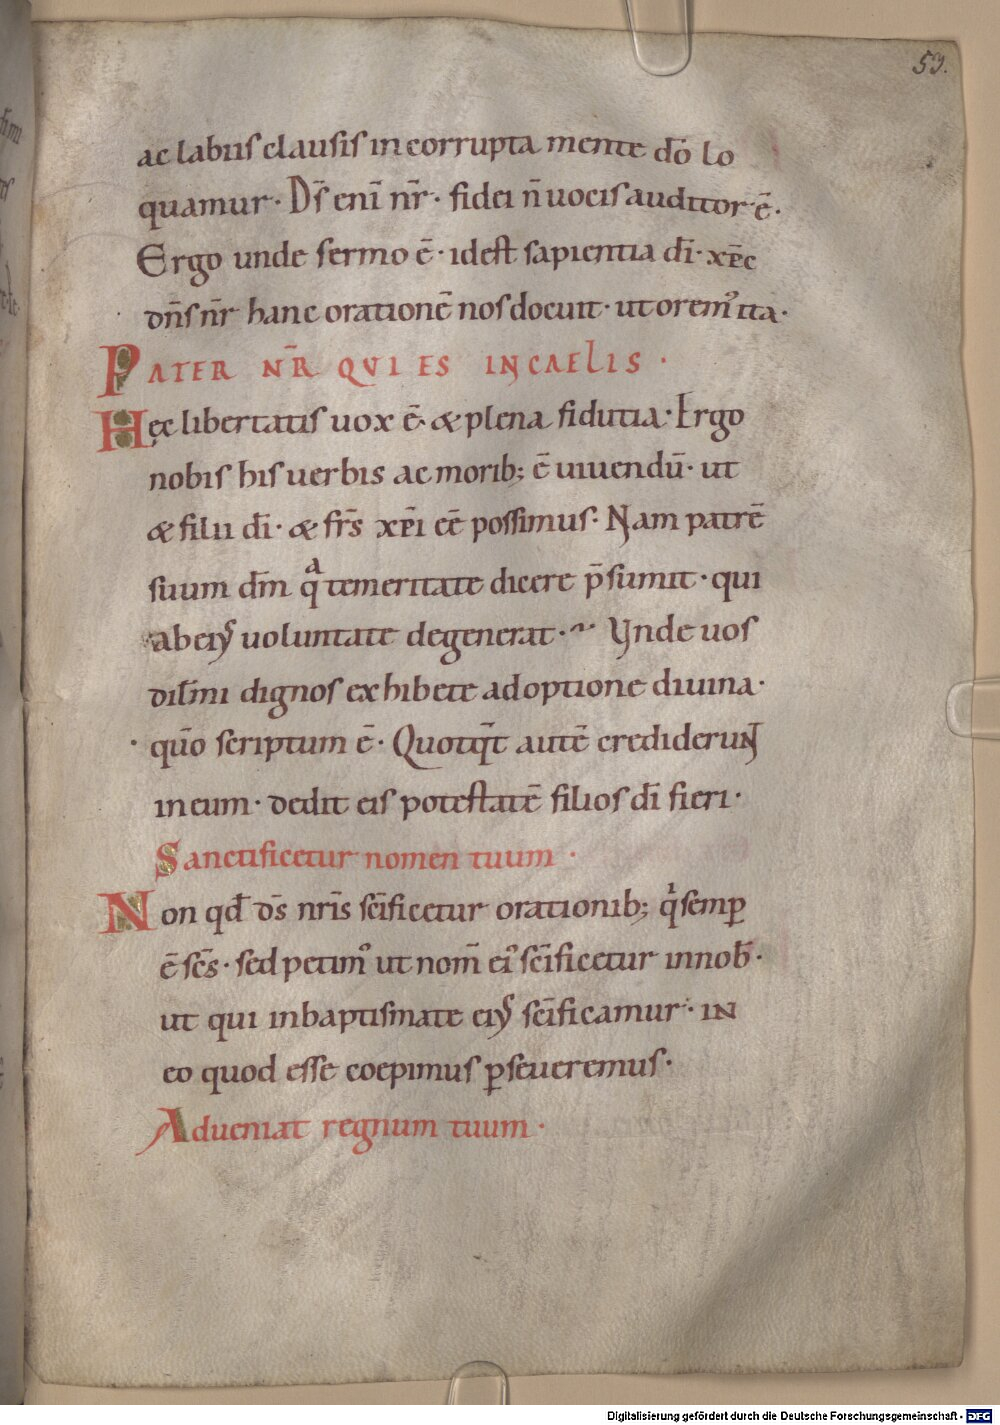 59.
ac labiis clausis incorrupta mente do̅ lo
quamur· Ds̅ eni̅ nr̅· fidei n̅ uocis auditor e̅·
Ergo unde sermo e̅· idest sapientia di̅· xpe̅c
dn̅s nr̅ hanc oratione̅ nos docuit· ut orem᾽ ita·
PATER NR̅ QVI ES IN CAELIS·
Hęc libertatis uox e̅· & plena fidutia· Ergo
nobis his uerbis ac morib; e̅ uiuendu̅· ut
& filii di̅· & frs̅ xpi̅ ee̅ possimus· Nam patre̅
suum dm̅ qᵃ temeritate dicere p̅sumit· qui
ab ei᾽ uoluntate degenerat· Vnde uos
dilm̅i dignos exhibete adoptione diuina·
quo̅ scriptum e̅· Quotqt̅ aute̅ crediderunt
in eum· dedit eis potestate̅ filios di̅ fieri·
Sanctificetur nomen tuum·
Non qd̅ ds̅ nr̅is sci̅ficetur orationib; qi semꝑ
e̅ sc̅s· sed petim᾽ ut nom̅ ei᾽ sci̅ficetur in nob̅·
ut qui in baptismate ei᾽ sci̅ficamur· in
eo quod esse coepimus ꝑseueremus·
Adueniat regnum tuum·
Digitalisierung gefördert durch die Deutsche Forschungsgemeinschaft - DFG